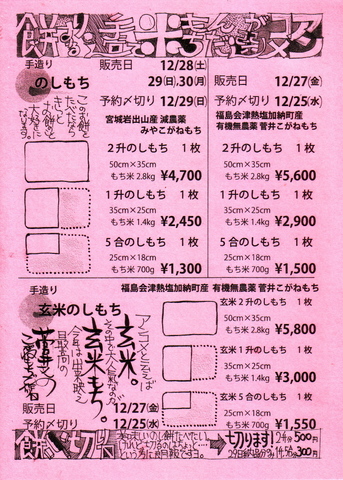 手造り
のしもち
販売日
12/28(土)
29(日),30(月)
予約〆切り 12/29(日)
宮城岩出山産 減農薬
みやこがねもち
2升のしもち 1枚
50cm×35cm
もち米 2.8kg ¥4,700
1升のしもち 1枚
35cm×25cm
もち米 1.4kg ¥2,450
5合のしもち 1枚
25cm×18cm
もち米 700g ¥1,300
販売日 12/27(金)
予約〆切り 12/25(水)
福島会津熱塩加納町産
有機無農薬 菅井こがねもち
2升のしもち 1枚
50cm×35cm
もち米 2.8kg ¥5,600
1升のしもち 1枚
35cm×25cm
もち米 1.4kg ¥2,900
5合のしもち 1枚
25cm×18cm
もち米 700g ¥1,500
手造り
玄米のしもち
福島会津熱塩加納町産 有機無農薬 菅井こがねもち
玄米。
玄米もち。
販売日 12/27(金)
〆切り 12/25(水)
玄米 2升のしもち 1枚
50cm×35cm
もち米 2.8kg ¥5,800
玄米 1升のしもち 1枚
35cm×25cm
もち米 1.4kg ¥3,000
玄米 5合のしもち 1枚
25cm×18cm
もち米 700g ¥1,550
餅切り
切ります!
500円
300円